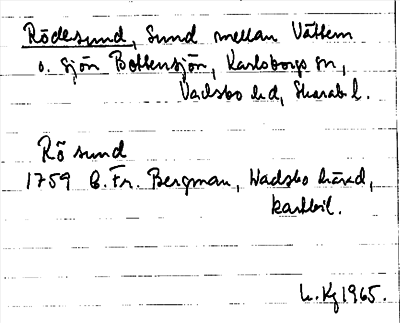 Rödesund, Sund mellan Vättern
o. sjön Bottensjön, Karlsborgs sn,
Vadsbo hd, Skarab. l.
Rö sund
1759 B. Fr. Bergman, Wadsbo härad,
kartbil.
1965.